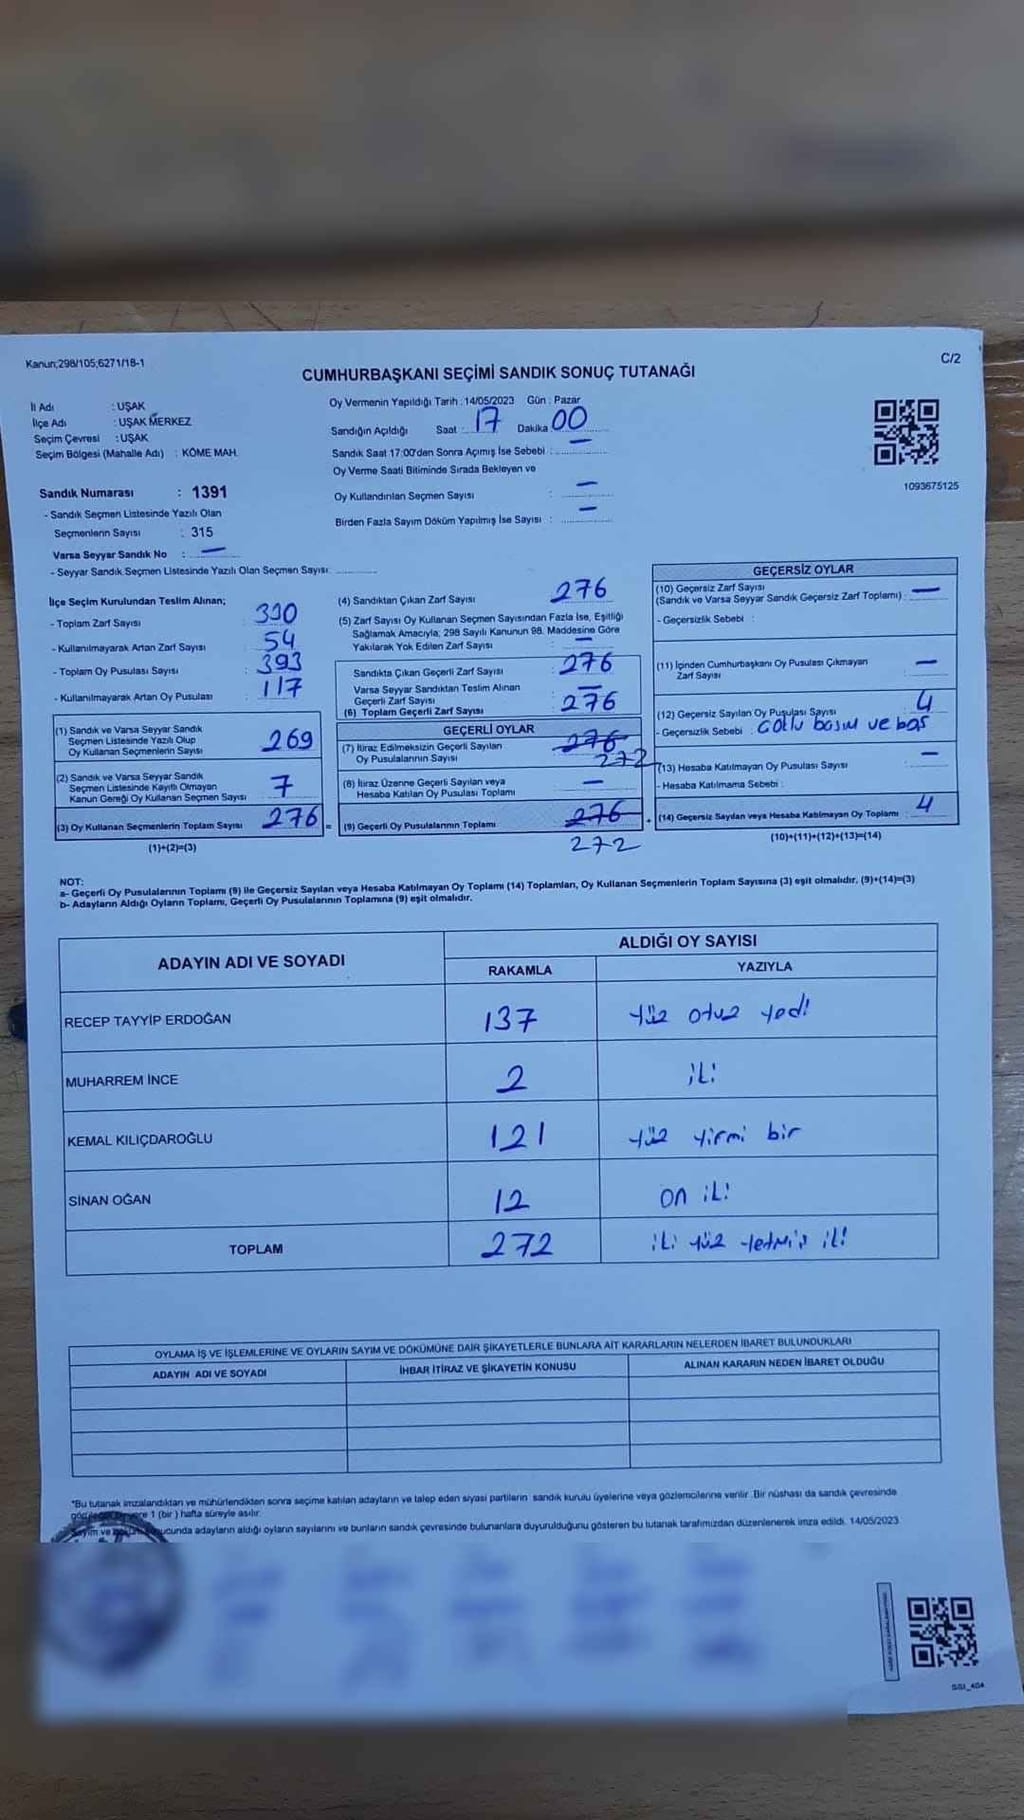 Kanun;298/105;6271/18-1
C/2
CUMHURBAŞKANI SEÇİMİ SANDIK SONUÇ TUTANAĞI
İl Adı : UŞAK
İlçe Adı : UŞAK MERKEZ
Seçim Çevresi : UŞAK
Seçim Bölgesi (Mahalle Adı) : KÖME MAH.
Sandık Numarası : 1391
- Sandık Seçmen Listesinde Yazılı Olan
Seçmenlerin Sayısı : 315
Varsa Seyyar Sandık No : —
- Seyyar Sandık Seçmen Listesinde Yazılı Olan Seçmen Sayısı:
Oy Vermenin Yapıldığı Tarih : 14/05/2023 Gün : Pazar
Sandığın Açıldığı Saat : 17 Dakika 00
Sandık Saat 17:00'den Sonra Açımış İse Sebebi : —
Oy Verme Saati Bitiminde Sırada Bekleyen ve
Oy Kullandırılan Seçmen Sayısı : —
Birden Fazla Sayım Döküm Yapılmış İse Sayısı : —
1093675125
İlçe Seçim Kurulundan Teslim Alınan;
- Toplam Zarf Sayısı : 330
- Kullanılmayarak Artan Zarf Sayısı : 54
- Toplam Oy Pusulası Sayısı : 393
- Kullanılmayarak Artan Oy Pusulası : 117
(1) Sandık ve Varsa Seyyar Sandık
Seçmen Listesinde Yazılı Olup
Oy Kullanan Seçmenlerin Sayısı 269
(2) Sandık ve Varsa Seyyar Sandık
Seçmen Listesinde Kayıtlı Olmayan
Kanun Gereği Oy Kullanan Seçmen Sayısı 7
(3) Oy Kullanan Seçmenlerin Toplam Sayısı 276 =
(1)+(2)=(3)
(4) Sandıktan Çıkan Zarf Sayısı 276
(5) Zarf Sayısı Oy Kullanan Seçmen Sayısından Fazla İse, Eşitliği
Sağlamak Amacıyla; 298 Sayılı Kanunun 98. Maddesine Göre
Yakılarak Yok Edilen Zarf Sayısı : —
Sandıkta Çıkan Geçerli Zarf Sayısı : 276
Varsa Seyyar Sandıktan Teslim Alınan
Geçerli Zarf Sayısı : —
(6) Toplam Geçerli Zarf Sayısı 276
GEÇERLİ OYLAR
(7) İtiraz Edilmeksizin Geçerli Sayılan 276
Oy Pusulalarının Sayısı 272
(8) İtiraz Üzerine Geçerli Sayılan veya
Hesaba Katılan Oy Pusulası Toplamı —
(9) Geçerli Oy Pusulalarının Toplamı 276 +
272
GEÇERSİZ OYLAR
(10) Geçersiz Zarf Sayısı
(Sandık ve Varsa Seyyar Sandık Geçersiz Zarf Toplamı) : —
- Geçersizlik Sebebi :
(11) İçinden Cumhurbaşkanı Oy Pusulası Çıkmayan
Zarf Sayısı —
(12) Geçersiz Sayılan Oy Pusulası Sayısı 4
- Geçersizlik Sebebi : basım ve boş
(13) Hesaba Katılmayan Oy Pusulası Sayısı —
- Hesaba Katılmama Sebebi :
(14) Geçersiz Sayılan veya Hesaba Katılmayan Oy Toplamı : 4
(10)+(11)+(12)+(13)=(14)
NOT:
a- Geçerli Oy Pusulalarının Toplamı (9) ile Geçersiz Sayılan veya Hesaba Katılmayan Oy Toplamı (14) Toplamları, Oy Kullanan Seçmenlerin Toplam Sayısına (3) eşit olmalıdır. (9)+(14)=(3)
b- Adayların Aldığı Oyların Toplamı, Geçerli Oy Pusulalarının Toplamına (9) eşit olmalıdır.
ADAYIN ADI VE SOYADI
ALDIĞI OY SAYISI
RAKAMLA YAZIYLA
RECEP TAYYİP ERDOĞAN 137 yüz otuz yedi
MUHARREM İNCE 2 iki
KEMAL KILIÇDAROĞLU 121 yüz yirmi bir
SİNAN OĞAN 12 on iki
TOPLAM 272 iki yüz yetmiş iki
OYLAMA İŞ VE İŞLEMLERİNE VE OYLARIN SAYIM VE DÖKÜMÜNE DAİR ŞİKAYETLERLE BUNLARA AİT KARARLARIN NELERDEN İBARET BULUNDUKLARI
ADAYIN ADI VE SOYADI İHBAR İTİRAZ VE ŞİKAYETİN KONUSU ALINAN KARARIN NEDEN İBARET OLDUĞU
*Bu tutanak imzalandıktan ve mühürlendikten sonra seçime katılan adayların ve talep eden siyasi partilerin sandık kurulu üyelerine veya gözlemcilerine verilir. Bir nüshası da sandık çevresinde
1 (bir) hafta süreyle asılır.
Sayım ve adayların aldığı oyların sayılarını ve bunların sandık çevresinde bulunanlara duyurulduğunu gösteren bu tutanak tarafımızdan düzenlenerek imza edildi. 14/05/2023